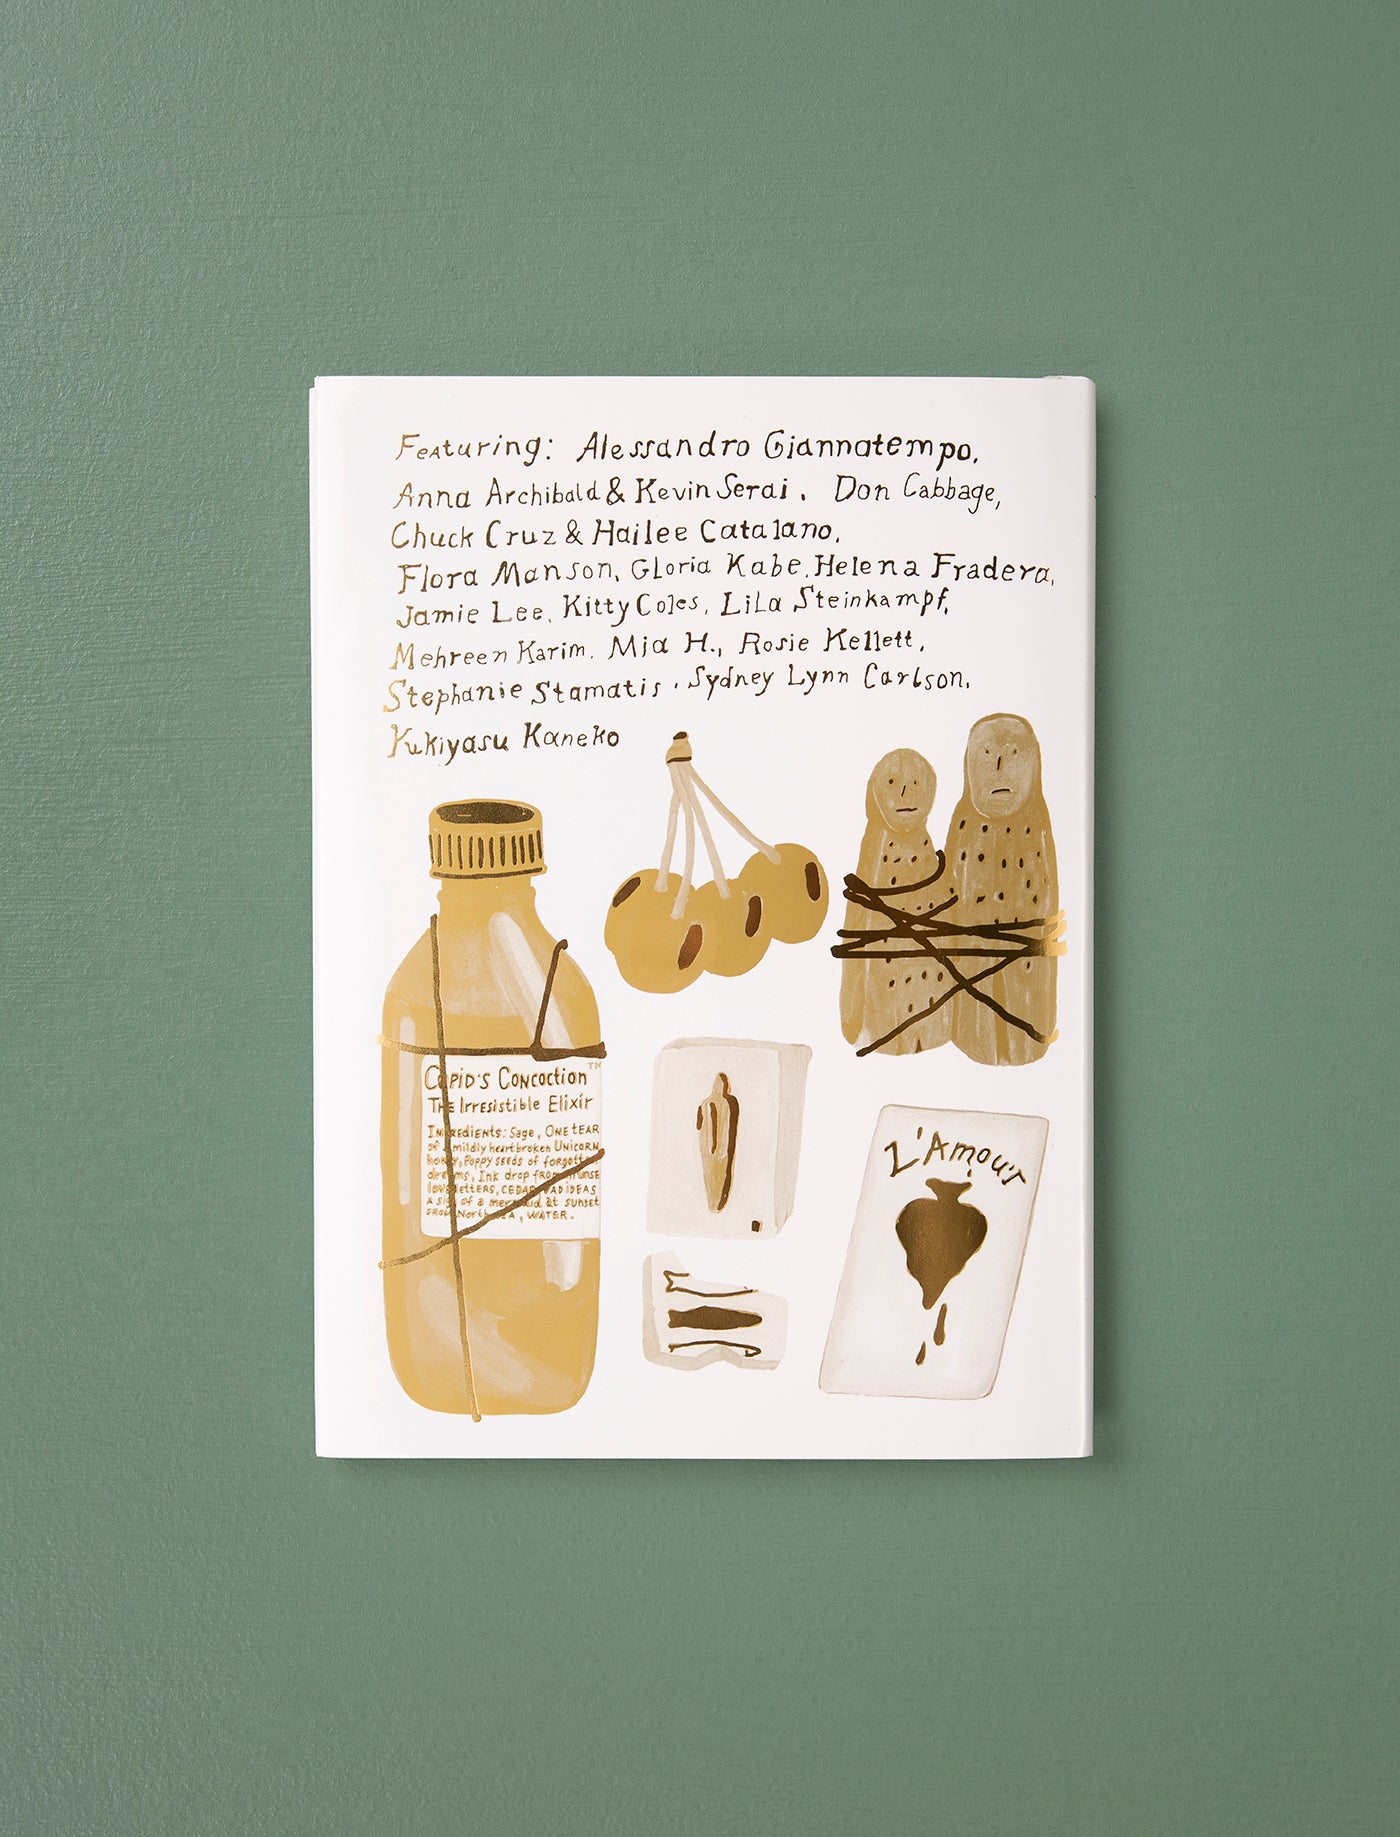 Featuring: Alessandro Giannatempo,
Anna Archibald & Kevin Serai, Don Cabbage,
Chuck Cruz & Hailee Catalano,
Flora Manson, Gloria Kabe, Helena Fradera,
Jamie Lee, Kitty Coles, Lila Steinkampf,
Mehreen Karim, Mia H., Rosie Kellett,
Stephanie Stamatis, Sydney Lynn Carlson,
Yukiyasu Kaneko
Cupid's Concoction TM
The Irresistible Elixir
Ingredients: Sage, One tear
of a mildly heartbroken Unicorn,
honey, Poppy seeds of forgotten
dreams, Ink drop from
love letters, Cedar, Bad ideas
a sigh of a mermaid at sunset
from North Sea, Water.
L'Amour